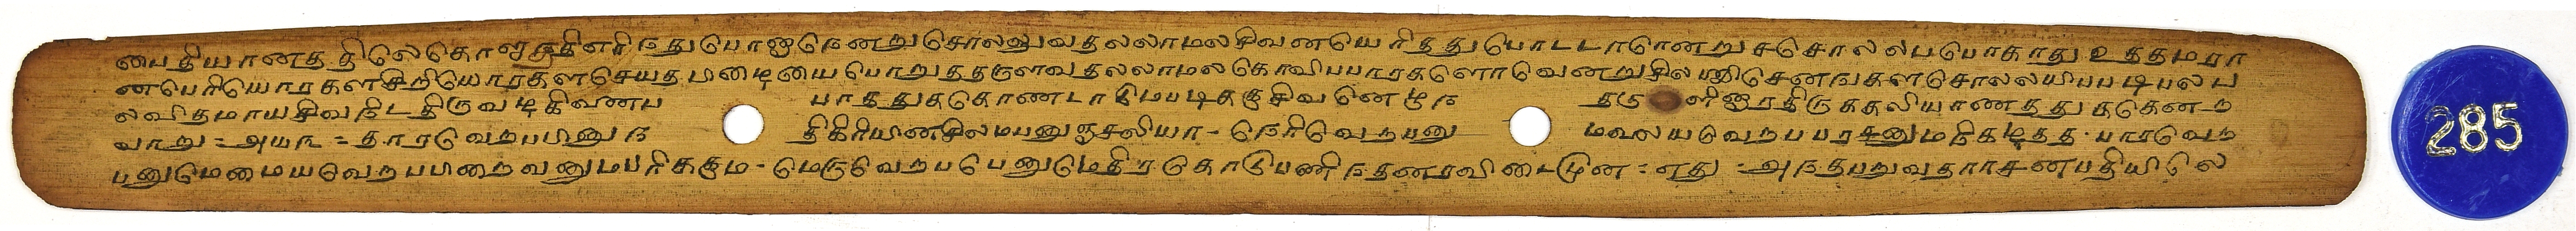 பைதியானத திலெகொளநதிஎரிநதுபொனாநெனறுசொலலுவதலலாமல சிவனயெரிதது போடடாரெனறு சசொலலபபொகாது உததமரா
னபெரியொரகளசிறியொரகளசெயத பிழையைபொறுததருளவதலலாமல கொவிபபாரகளொவெனறுசில முனிசெனஙகளசொலலயிபபடிபல ப
லவிதமாயசிவநிடதிருவடிகிவணப பாததுககொணடாரமெபடிககுசிவனெழுந தரு ளினாரதிருககலியாணதது ககெனற
வாறு = அயந = தாரவெறபபினுந திகிரியினசிலமபனுஞசலியா - நெரிவெறபனு மவலயவெறபபரசனுமநிகழதத பாரவெற
பனுமெமையவெறபபிறைவனுமபரிககும - மெருவெறபபெனுமெதிரகொடுபணிநதனரவிடைமுன = எது = அநதபறுவதராசனபதியிலெ
285